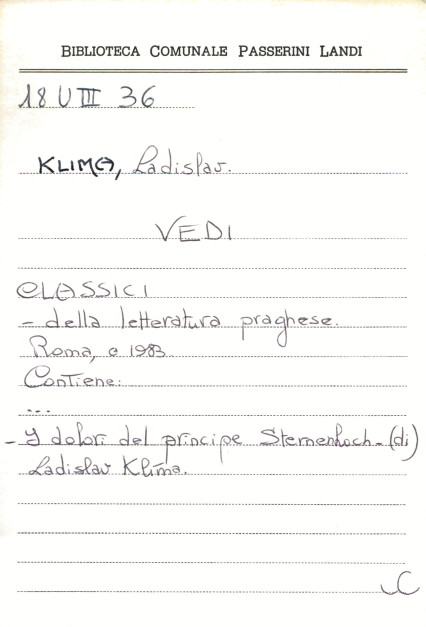 BIBLIOTECA COMUNALE PASSERINI LANDI
18 U III 36
KLIMA, Ladislav.
VEDI
CLASSICI
- della letteratura praghese.
Roma, c 1983
Contiene:
...
- I dolori del principe Sternenhoch - (di)
Ladislav Klíma.